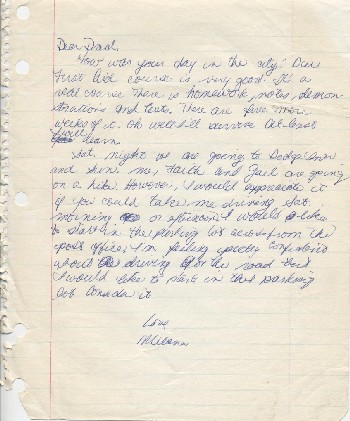 Dear Dad,
How was your day in the city? Our
First Aid course is very good. It's a
real course. There is homework, notes, demon-
strations and tests. There are five more
weeks of it. Oh well I'll survive. At least
I will learn.
Sat. night we are going to
and me, Faith and Gail are going
on a hike. However, I would appreciate it
if you could take me driving Sat.
morning or afternoon. I would like
to start in the parking lot across from the
post office. I'm feeling pretty confident
about driving on the road but
I would like to start in that parking
lot. Consider it.
Love